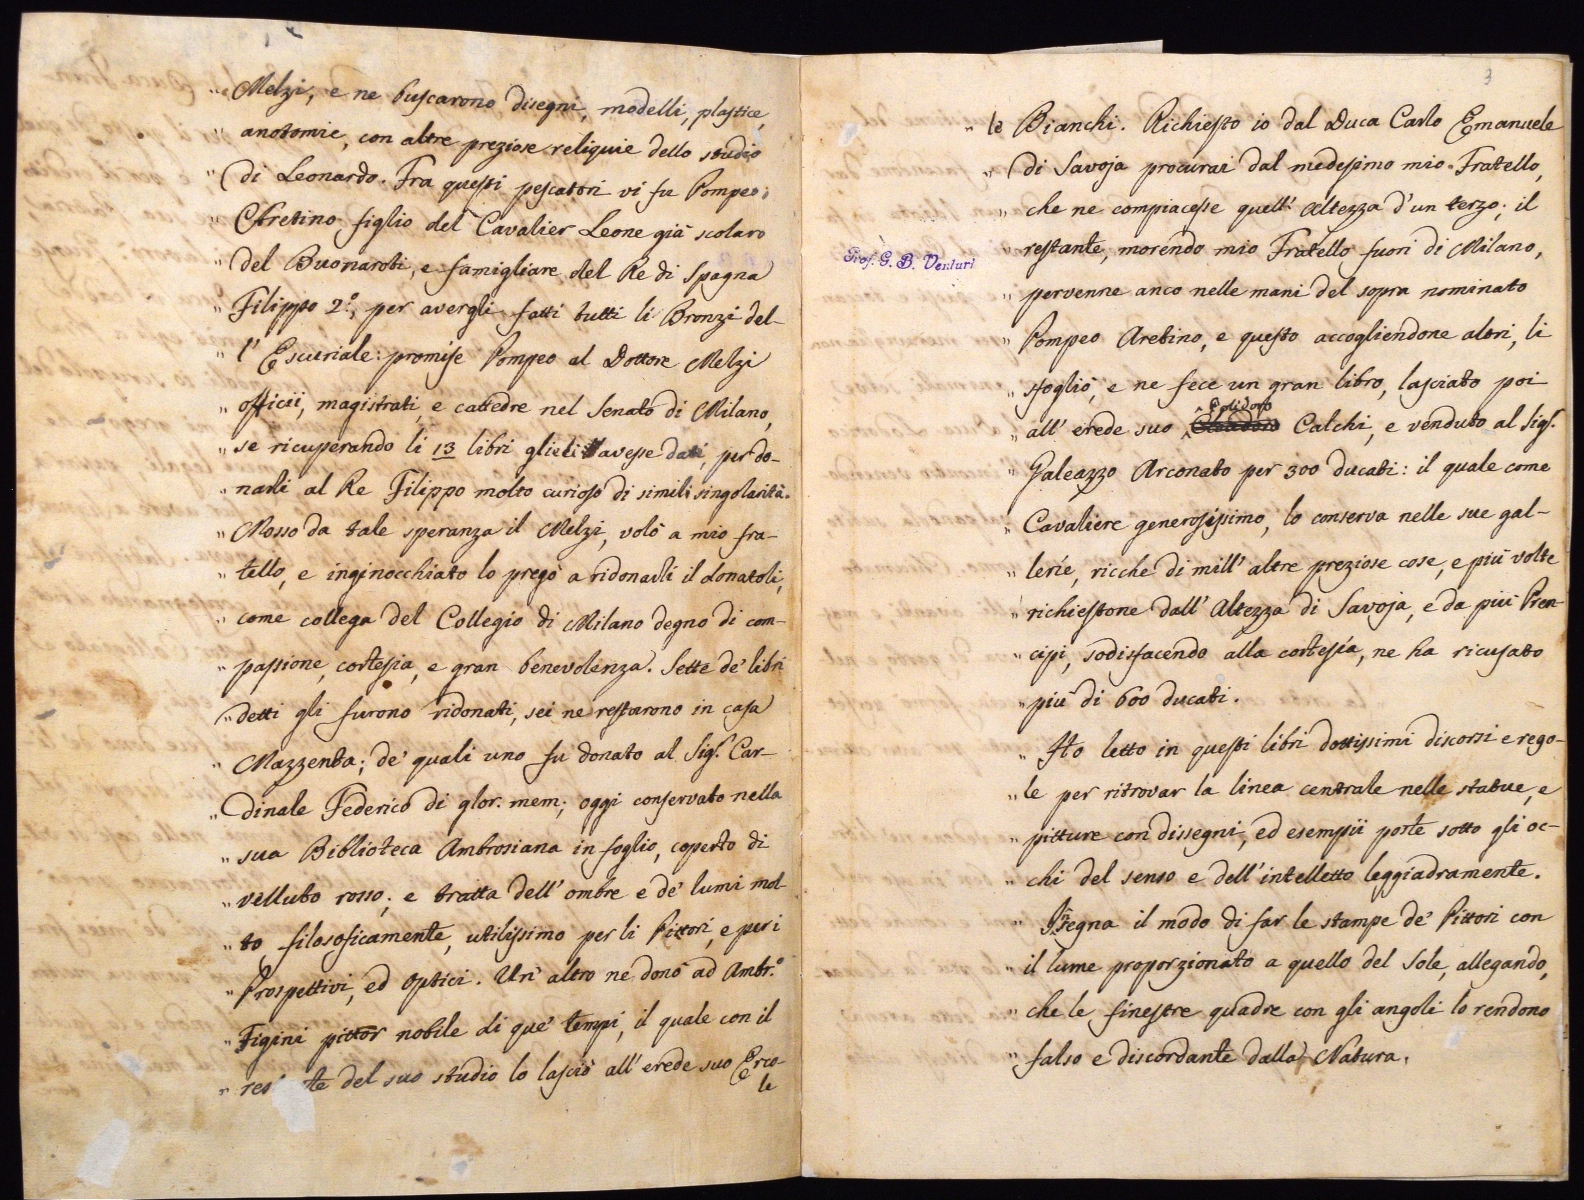 " Melzi, e ne buscarono disegni, modelli, plastice,
" anotomie, con altre preziose reliquie dello studio
" di Leonardo. Fra questi pescatori vi fu Pompeo
" Aretino figlio del Cavalier Leone già scolaro
" del Buonaroti, e famigliare del Re di Spagna
" Filippo 2.º, per avergli fatti tutti li Bronzi del-
" l' Escuriale: promise Pompeo al Dottore Melzi
" officii, magistrati, e cattedre nel Senato di Milano,
" se ricuperando li 13 libri glieli avesse dati, per do-
" narli al Re Filippo molto curioso di simili singolarità.
" Mosso da tale speranza il Melzi, volò a mio fra-
" tello, e inginocchiato lo pregò a ridonarli il donatoli,
" come collega del Collegio di Milano degno di com-
" passione, cortesia, e gran benevolenza. Sette de' libri
" detti gli furono ridonati, sei ne restarono in casa
" Mazzenta; de' quali uno fu donato al Sig.r Car-
" dinale Federico di glor. mem; oggi conservato nella
" sua Biblioteca Ambrosiana in foglio, coperto di
" velluto rosso; e tratta dell' ombre e de' lumi mol-
" to filosoficamente, utilissimo per li Pittori, e per i
" Prospettivi, ed Optici. Un' altro ne donò ad Ambr.º
" Figini pittor nobile di que' tempi, il quale con il
" res te del suo studio lo lasciò all' erede suo Erco-
le
3
" le Bianchi. Richiesto io dal Duca Carlo Emanuele
" di Savoja procurai dal medesimo mio Fratello,
" che ne compiacesse quell' Altezza d'un terzo; il
" restante, morendo mio Fratello fuori di Milano,
Prof. G. B. Venturi
" pervenne anco nelle mani del sopra nominato
" Pompeo Aretino, e questo accogliendone altri, li
" sfogliò, e ne fece un gran libro, lasciato poi
Polidoro
" all' erede suo Calchi, e venduto al Sig.r
" Galeazzo Arconato per 300 ducati: il quale come
" Cavaliere generosissimo, lo conserva nelle sue gal-
" lerie, ricche di mill' altre preziose cose, e più volte
" richiestone dall' Altezza di Savoja, e da più Pren-
" cipi, sodisfacendo alla cortesia, ne ha ricusato
" più di 600 ducati.
" Ho letto in questi libri dottissimi discorsi e rego-
" le per ritrovar la linea centrale nelle statue, e
" pitture con dissegni, ed esempii poste sotto gli oc-
" chi del senso e dell' intelletto leggiadramente.
" Insegna il modo di far le stampe de' Pittori con
" il lume proporzionato a quello del Sole, allegando,
" che le finestre quadre con gli angoli lo rendono
" falso e discordante dalla Natura.